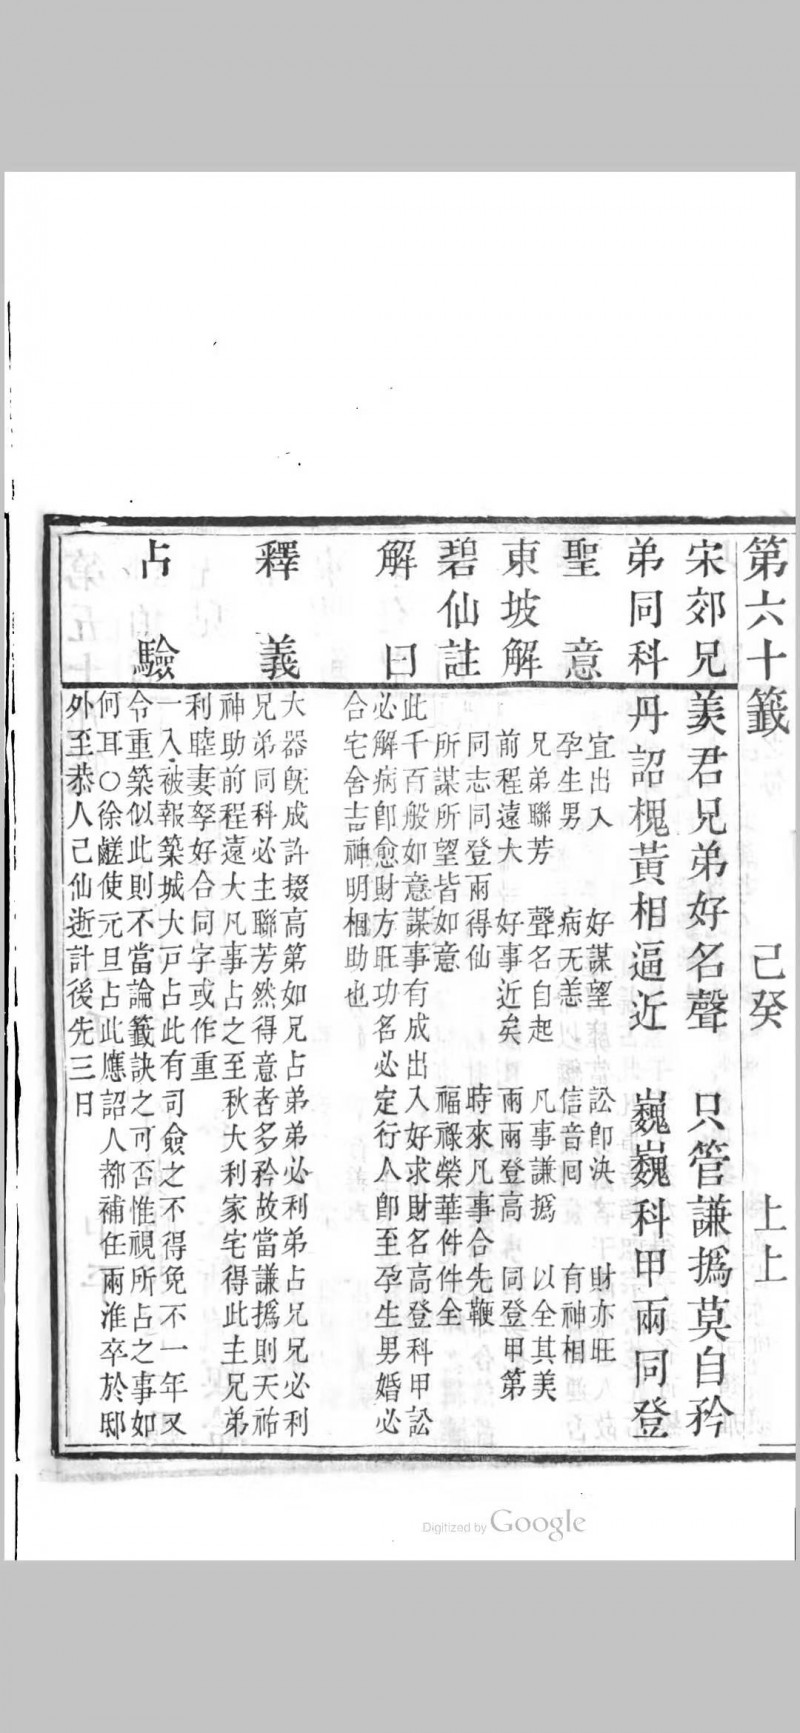 第六十籤 己癸 上上
宋郊兄羨君兄弟好名聲 只管謙撝莫自矜
弟同科丹詔槐黃相逼近 巍巍科甲兩同登
聖意 宜出入 好謀望 訟即決 財亦旺
孕生男 病无恙 信音回 有神相
東坡解 兄弟聯芳 聲名自起 凡事謙撝 以全其美
前程遠大 好事近矣 兩兩登高 同登甲第
碧仙註 同志同登兩得仙 時來凡事合先鞭
所謀所望皆如意 福祿榮華件件全
解曰 此千百般如意謀事有成出入好求財名高登科甲訟
必解病即愈財方旺功名必定行人即至孕生男婚必
合宅舍吉神明相助也
釋義 大器旣成許掇高第如兄占弟弟必利弟占兄兄必利
兄弟同科必主聯芳然得意者多矜故當謙撝則天祐
神助前程遠大凡事占之至秋大利家宅得此主兄弟
利睦妻孥好合同字或作重
占驗 一人被報築城大戸占此有司僉之不得免不一年又
令重築似此則不當論籤訣之可否惟視所占之事如
何耳○徐鹺使元旦占此應詔人都補任兩淮卒於邸
外至恭人已仙逝計後先三日
Digitized by Google